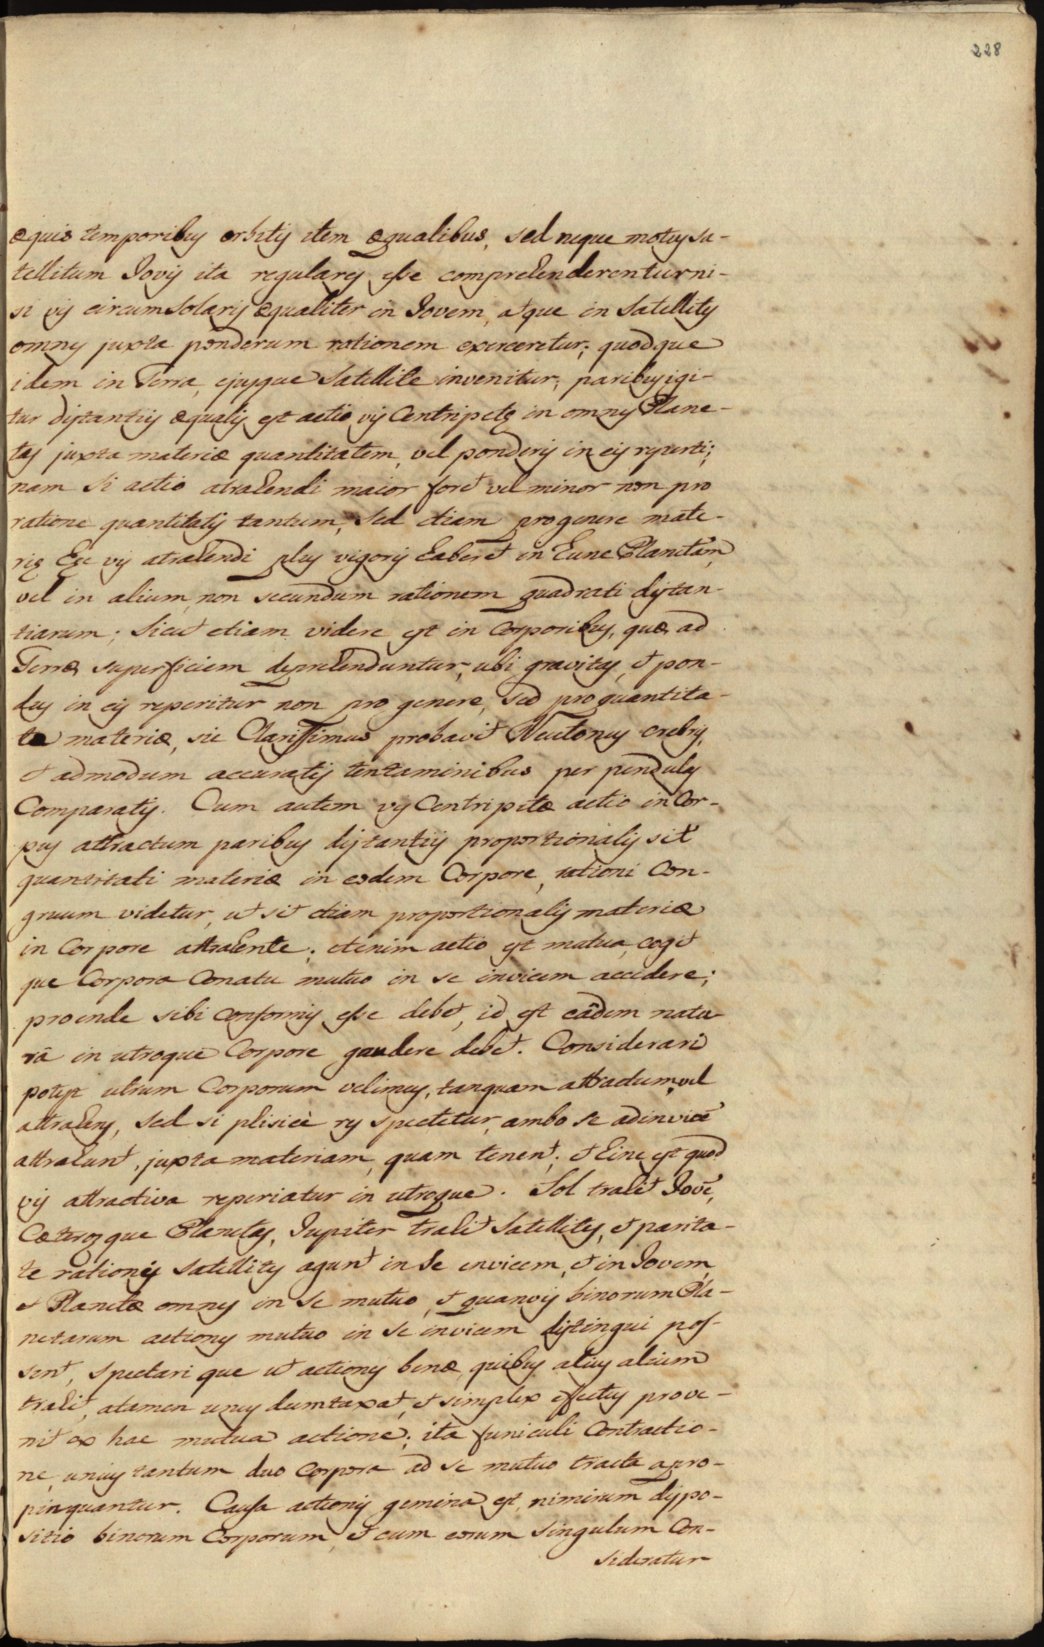 228
æquis temporibus orbitis item æqualibus, sed neque motus sa-
tellitum Jovis ita regulares esse comprehenderentur ni-
si vis circumsolaris æqualiter in Jovem, atque in Satellites
omnes juxta ponderum rationem exerceretur; quodque
idem in Terra, ejusque Satellite invenitur; paribus igi-
tur distantiis æqualis est actio vis Centripetę in omnes Plane-
tas juxta materiæ quantitatem, vel ponderis in eis reperti;
nam si actio atrahendi maior foret vel minor non pro
ratione quantitatis tantum, sed etiam pro genere mate-
rię hæc vis atrahendi plus vigoris haberet in hunc Planetam,
vel in alium, non secundum rationem quadrati distan-
tiarum; sicut etiam videre est in Corporibus, quæ ad
Terræ superficiem deprehenduntur, ubi gravitas, et pon-
dus in eis reperitur non pro genere, sed pro quantita-
te materiæ, sic Clarissimus probavit Neutonus crebris,
et admodum accuratis tentaminibus per pendulas
Comparatis. Cum autem vis Centripetæ actio in Cor-
pus attractum paribus distantiis proportionalis sit
quantitati materiæ in eodem Corpore, rationi Con-
gruum videtur, ut sit etiam proportionalis materiæ
in Corpore attrahente; etenim actio est mutua, cogit
que Corpora Conatu mutuo in se invicem accedere;
proinde sibi conformis esse debet, id est eâdem natu-
râ in utroque Corpore gaudere debet. Considerari
potest utrum Corporum velimus, tanquam attractum, vel
attrahens, sed si phisicè res spectetur, ambo se adinvicē
attrahunt, juxta materiam, quam tenent; et hinc est quod
vis attractiva reperiatur in utroque. Sol trahit Jovē,
Cæterosque Planetas, Jupiter trahit Satellites, et parita-
te rationis Satellites agunt in se invicem, et in Jovem,
et Planetæ omnes in se mutuo, et quamvis binorum Pla-
netarum actiones mutuo in se invicem distingui pos-
sent, spectari que ut actiones binæ, quibus alius alium
trahit, atamen unus dumtaxat, et simplex effectus prove-
nit ex hac mutua actione; ita funiculi Contractio-
ne, unius tantum duo Corpora ad se mutuo tracta apro-
pinquantur. Causa actionis gemina est, nimirum dispo-
sitio binorum Corporum, et cum eorum singulum Con-
sideratur